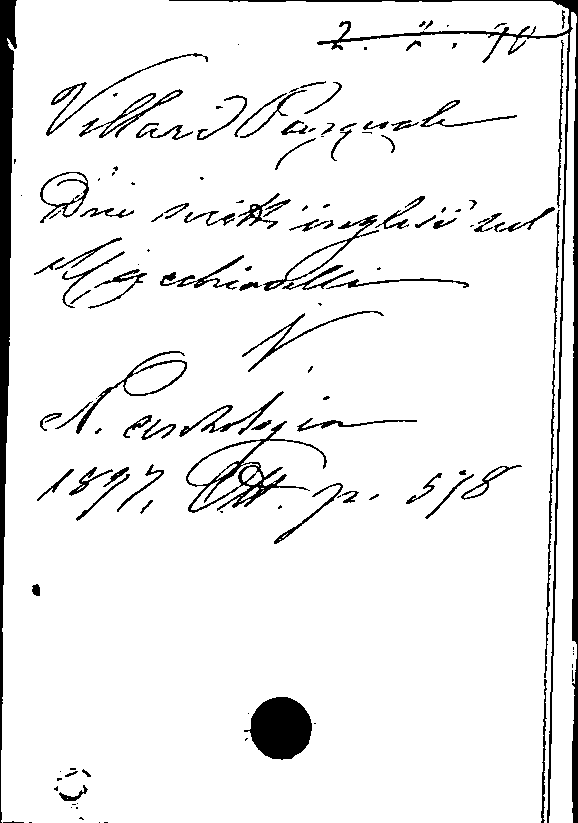 2. X. 90
Villari Pasquale
Due scritti inglesi sul
Macchiavelli
V.
N. antologia
1897, Ott. p. 578